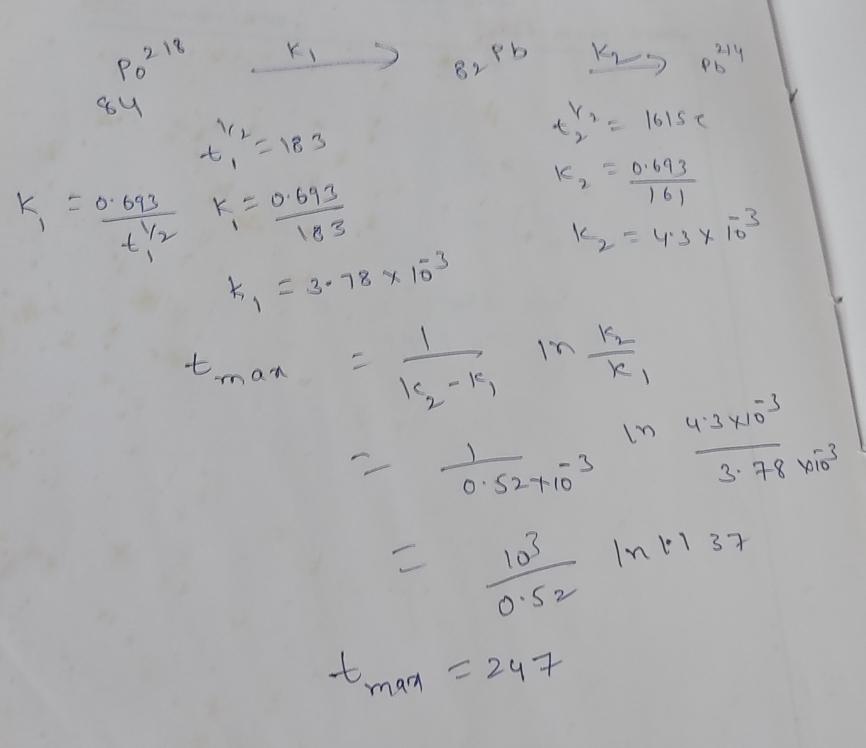 ₈₄Po²¹⁸ —K₁→ ₈₂Pb —K₂→ Pb²¹⁴
t₁^1/2 = 183    t₂^1/2 = 161 sec
K₁ = 0.693/t₁^1/2    K₁ = 0.693/183    K₂ = 0.693/161
K₁ = 3.78 × 10⁻³    K₂ = 4.3 × 10⁻³
t max = 1/(K₂ - K₁) ln K₂/K₁
= 1/(0.52 × 10⁻³) ln (4.3 × 10⁻³)/(3.78 × 10⁻³)
= 10³/0.52 ln 1.137
t max = 247